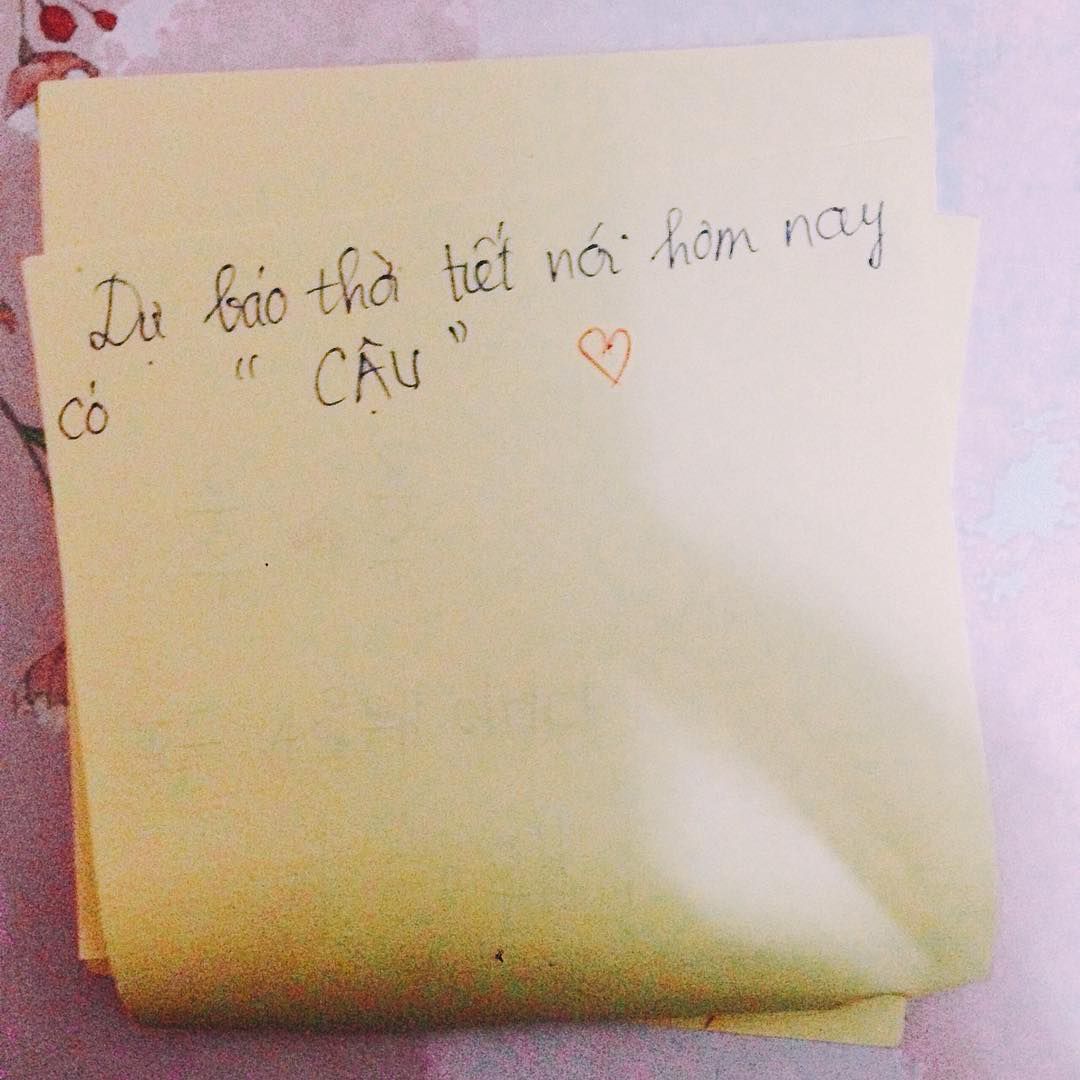 Dự báo thời tiết nói hôm nay
có " CẬU "